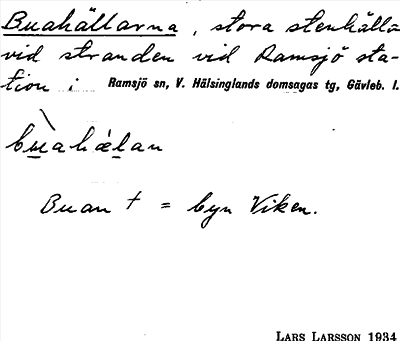 Buahällarna, stora stenhällar
vid stranden vid Ramsjö sta-
tion i Ramsjö sn, V. Hälsinglands domsagas tg, Gävleb. l.
bu̲ahæ̲lan
Buan † = byn Viken.
LARS LARSSON 1934